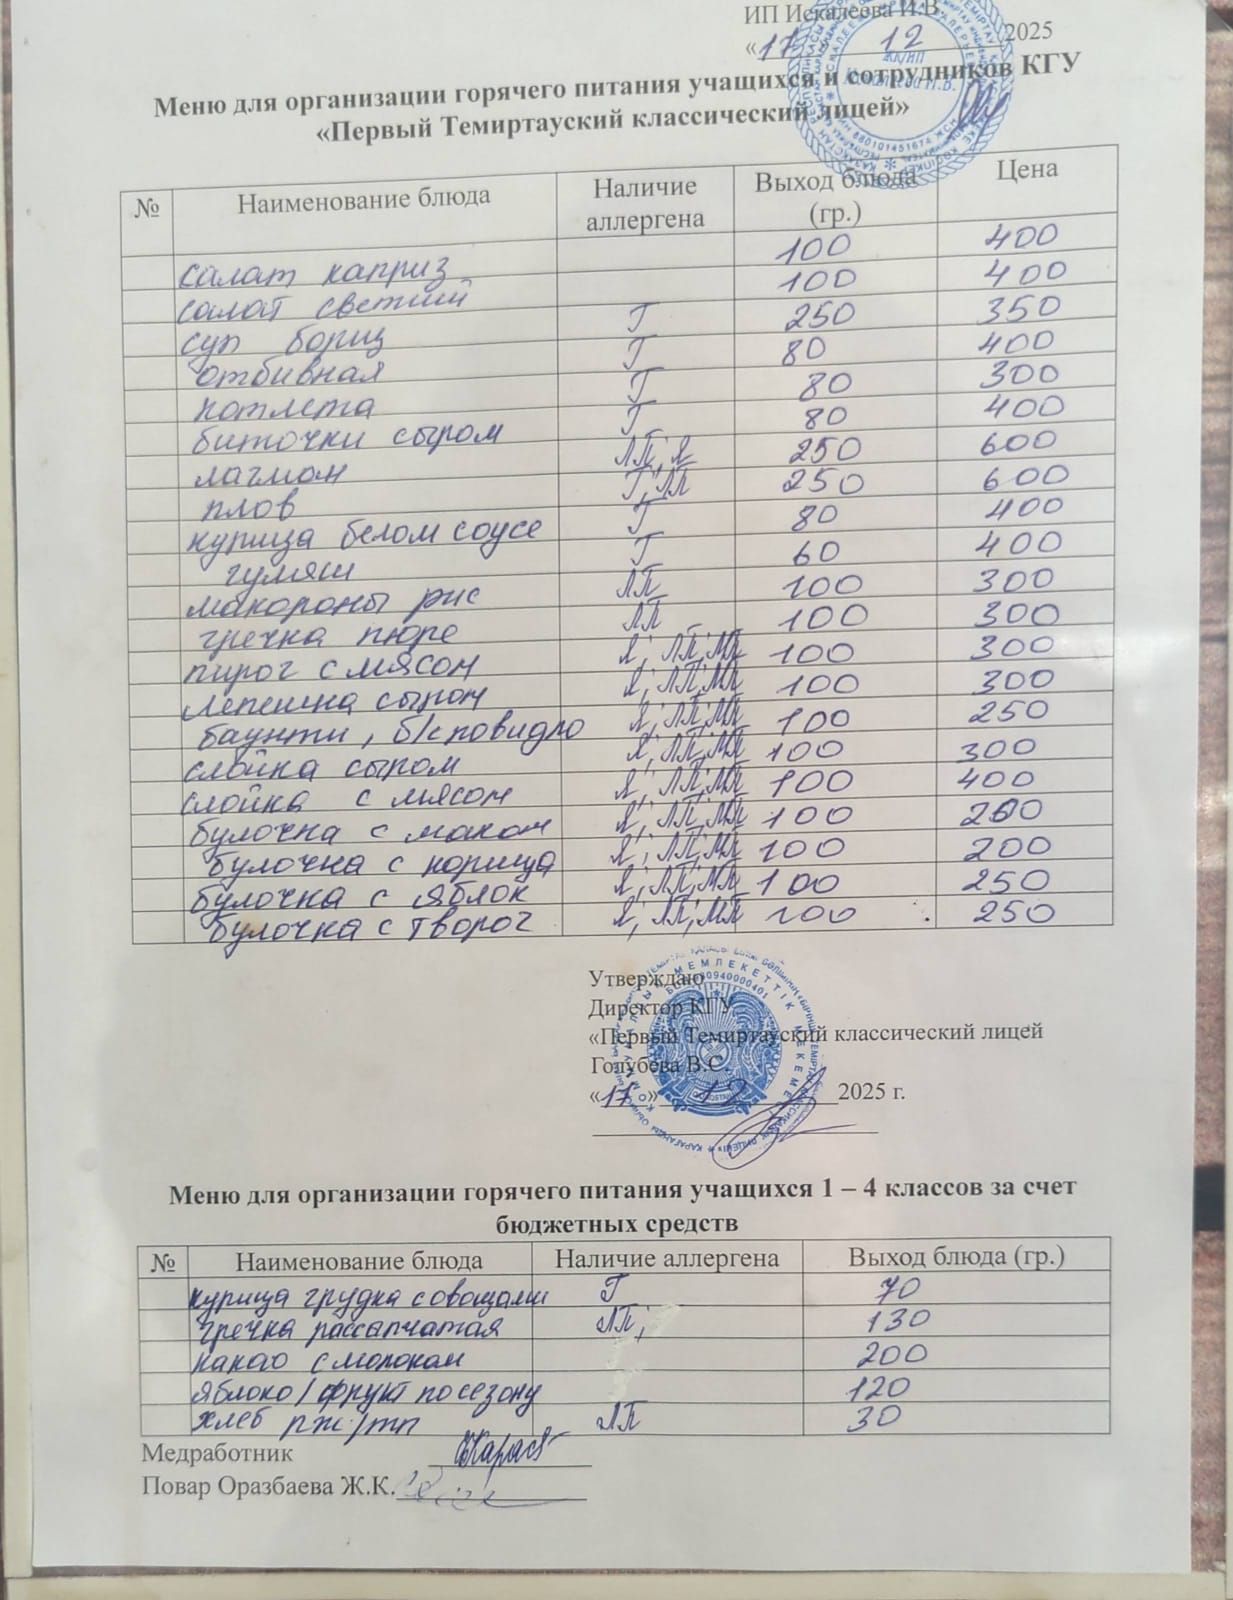 ИП Искалеева И.В.
«17 12 2025
Меню для организации горячего питания учащихся и сотрудников КГУ
«Первый Темиртауский классический лицей»
№ Наименование блюда Наличие аллергена Выход блюда (гр.) Цена
салат каприз 100 400
салат светший 100 400
суп борщ Г 250 350
отбивная Г 80 400
котлета Г 80 300
биточки сыром Г 80 400
лагман ЛП; Я 250 600
плов Г; ЛП 250 600
курица белом соусе Г 80 400
гуляш Г 60 400
макороны рис ЛП 100 300
гречка пюре ЛП 100 300
пирог с мясом Я; ЛП; МП 100 300
лепешка сыром Я; ЛП; МП 100 300
баунти, б/с повидло Я; ЛП; МП 100 250
слойка сыром Я; ЛП; МП 100 300
слойка с мясом Я; ЛП; МП 100 400
булочка с маком Я; ЛП; МП 100 200
булочка с корица Я; ЛП; МП 100 200
булочка с яблок Я; ЛП; МП 100 250
булочка с творог Я; ЛП; МП 100 250
Утверждаю
Директор КГУ
«Первый Темиртауский классический лицей
Голубева В.С.
«17» 12 2025 г.
Меню для организации горячего питания учащихся 1 – 4 классов за счет
бюджетных средств
№ Наименование блюда Наличие аллергена Выход блюда (гр.)
курица грудка с овощами Г 70
гречка рассапчатая ЛП; 130
какао с молоком 200
яблоко / фрукт по сезону 120
хлеб рж/пш ЛП 30
Медработник
Повар Оразбаева Ж.К.